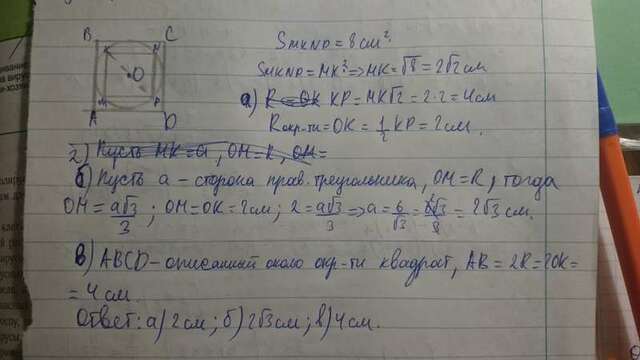 B C
K N
O
M P
A D
Sмкnp = 8 см².
Sмкnp = МК² => МК = √8 = 2√2 см
а) R = OK KP = МК√2 = 2·2 = 4см
Rокр-ти = OK = 1/2 KP = 2см.
2) Пусть МК = a, OM = R, OM =
б) Пусть a - сторона прав. треугольника, OM = R, тогда
OM = a√3/3; OM = OK = 2см; 2 = a√3/3 => a = 6/√3 = 6√3/3 = 2√3 см.
в) ABCD - описанный около окр-ти квадрат, AB = 2R = 2OK =
= 4 см.
Ответ: а) 2 см; б) 2√3 см; в) 4 см.